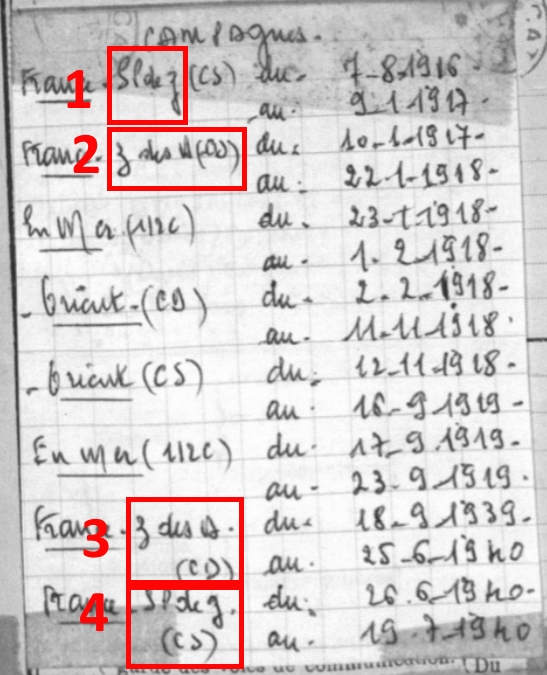 CAMPAGnes.
1 France. SP de z (CS) du. 7-8-1916
au. 9-1-1917.
2 France. z des A (CD) du. 10-1-1917-
au. 22-1-1918-
En Mer (1/2C) du. 23-1-1918-
au. 1.2.1918-
- Orient. (CD) du. 2.2.1918-
au. 11-11-1918.
- Orient (CS) du. 12-11-1918
au. 16-9-1919-
En Mer (1/2C) du. 17-9.1919-
au. 23.9.1919.
3 France. z des A. du. 18-9-1939-
(CD) au. 25-6-1940
4 France. SP de z. du. 26.6-1940-
(CS) au. 19.7-1940
voies de communication. (Du